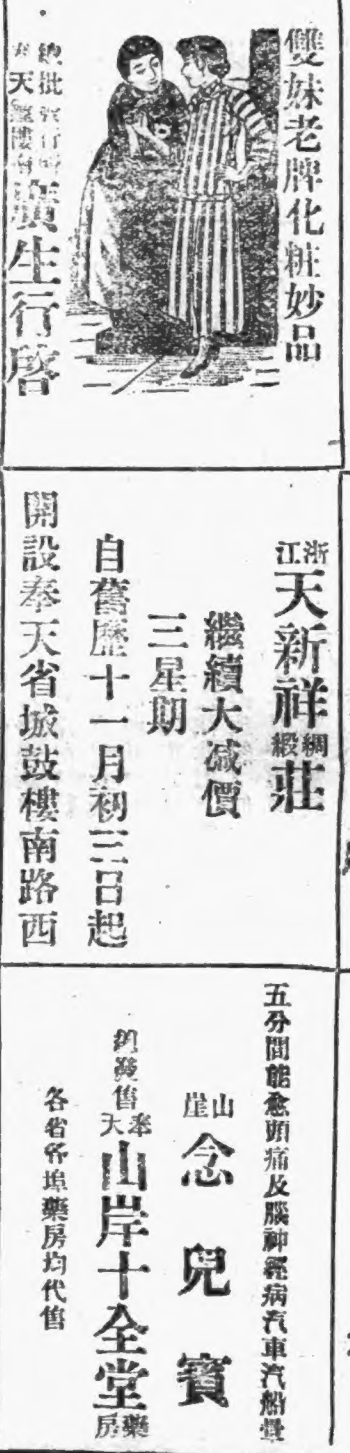 雙妹老牌化粧妙品
總批發行所
天鼓樓南
廣生行啓
浙江天新祥綢緞莊
繼續大减價
三星期
自舊歷十一月初三日起
開設奉天省城鼓樓南路西
五分間能愈頭痛及腦神經病汽車汽船暈
山崖念兒寶
總發售
奉天山岸十全堂藥房
各省各埠藥房均代售